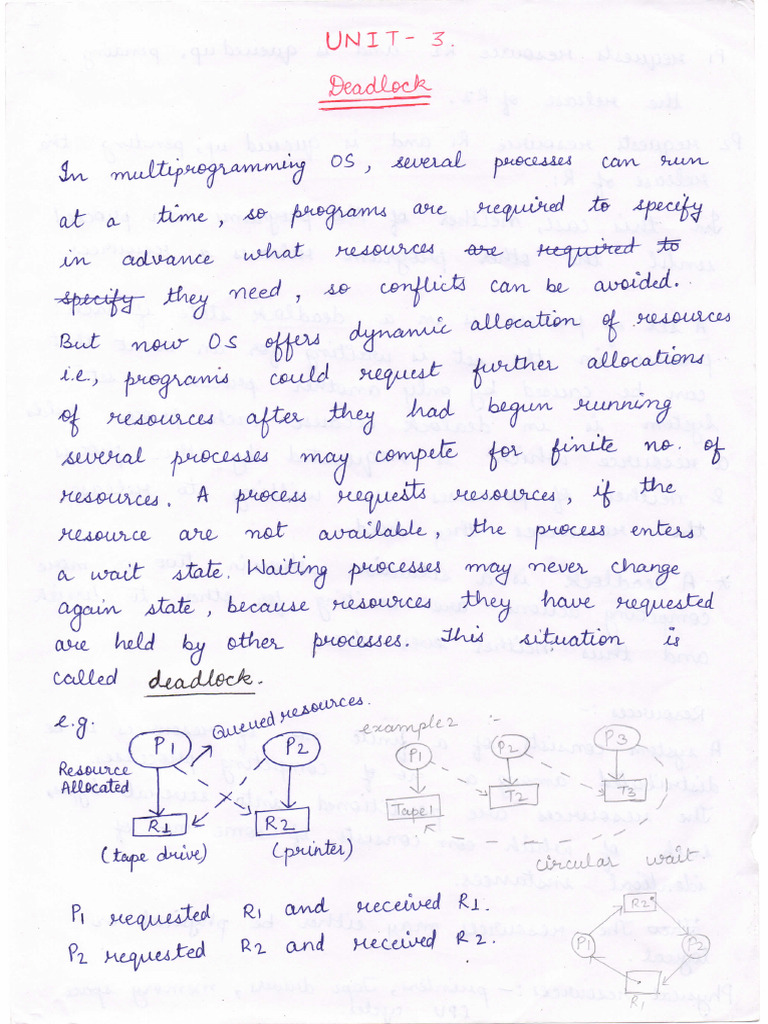 UNIT- 3.
Deadlock
In multiprogramming OS, several processes can run
at a time, so programs are required to specify
in advance what resources are required to
specify they need, so conflicts can be avoided.
But now OS offers dynamic allocation of resources
i.e., programs could request further allocations
of resources after they had begun running
several processes may compete for finite no. of
resources. A process requests resources if the
resource are not available, the process enters
a wait state. Waiting processes may never change
again state, because resources they have requested
are held by other processes. This situation is
called deadlock.
e.g.
Queued resources.
P1
P2
Resource
Allocated
R1
R2
(tape drive)
(printer)
example 2 :-
P1
P2
P3
Tape1
T2
T3
circular wait
P1 requested R1 and received R1.
P2 requested R2 and received R2.
R2
P1
P2
R1